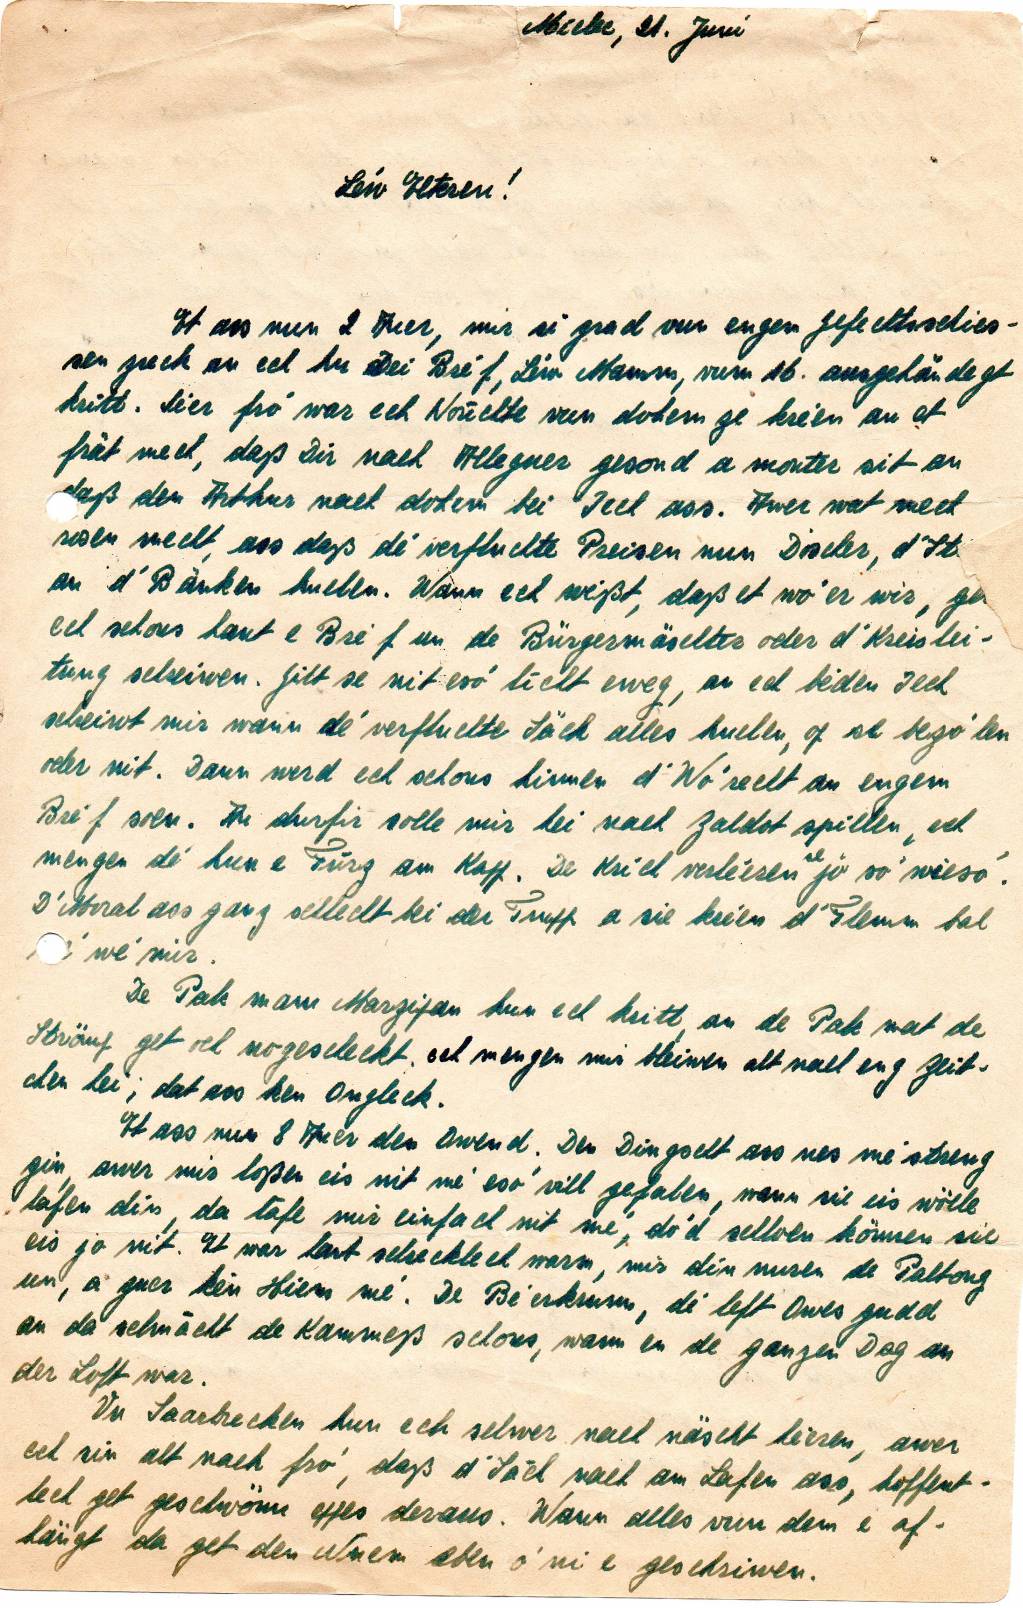 Mielec, 21. Juni
Léiw Elteren!
Et ass nun 2 Auer, mir si grad vun engem Gefechtsschies-
sen zreck an ech hu Dei Bréf, Léiw Mamm, vum 16. ausgehändegt
kritt. Sier fró war ech Noúchte vun dohem ze kréien an et
frät mech, daß Dir nach Alleguer gesond a monter sit an
daß den Arthur nach dohem bei Iech ass. Awer wat mech
rosen mecht, ass daß dé verfluchte Preisen nun Döscher, d'St
an d' Bänken huelen. Wann ech wißt, daß et wó'er wir, ge
ech schons haut e Bréf un de Bürgermäschter oder d' Kreislei-
tung schreiwen. Gitt se nit esó liicht eweg, an ech bieden Iech
schreiwt mir wann dé verfluchte Säch alles huelen, op se bezó'len
oder nit. Dann werd ech schons hinnen d' Wó'recht an engem
Bréf soen. An durfir solle mir hei nach Zaldot spillen, ech
mengen dé hun e Furz am Kapp. De Krich verléieren se jo só wiesó.
D'Moral ass ganz schlecht bei der Trupp a sie kréien d'Flemm bal
wé mir.
De Pak mam Marzipan hun ech kritt, an de Pak mat de
Strömp get och nogescheckt. ech mengen mir bleiwen alt nach eng Zeit-
chen hei; dat ass ken Ongleck.
Et ass nun 8 Auer den Owend. Den Dingscht ass nes mé streng
gin, awer mir loßen eis nit mé esó vill gefalen, wann sie eis wölle
lafen din, da lafe mir einfach nit mé, dó'd schloen können sie
eis jo nit. Et war haut schrecklech warm, mir din nuren de Paltong
un, a guer kén Hiem mé. De Bé'erkrumm, dé left Owes gudd
an da schmächt de Kammeß schons, wann en de ganzen Dag an
der Loft war.
Vu Saarbrecken hun ech selwer nach näscht héieren, awer
ech sin alt nach fró, daß d'Säch nach am Lafen ass, hoffent-
lech get geschwönn eppes deraus. Wann alles vun dem e of-
hängt da get den Numm eben ó'ni e geschriwen.